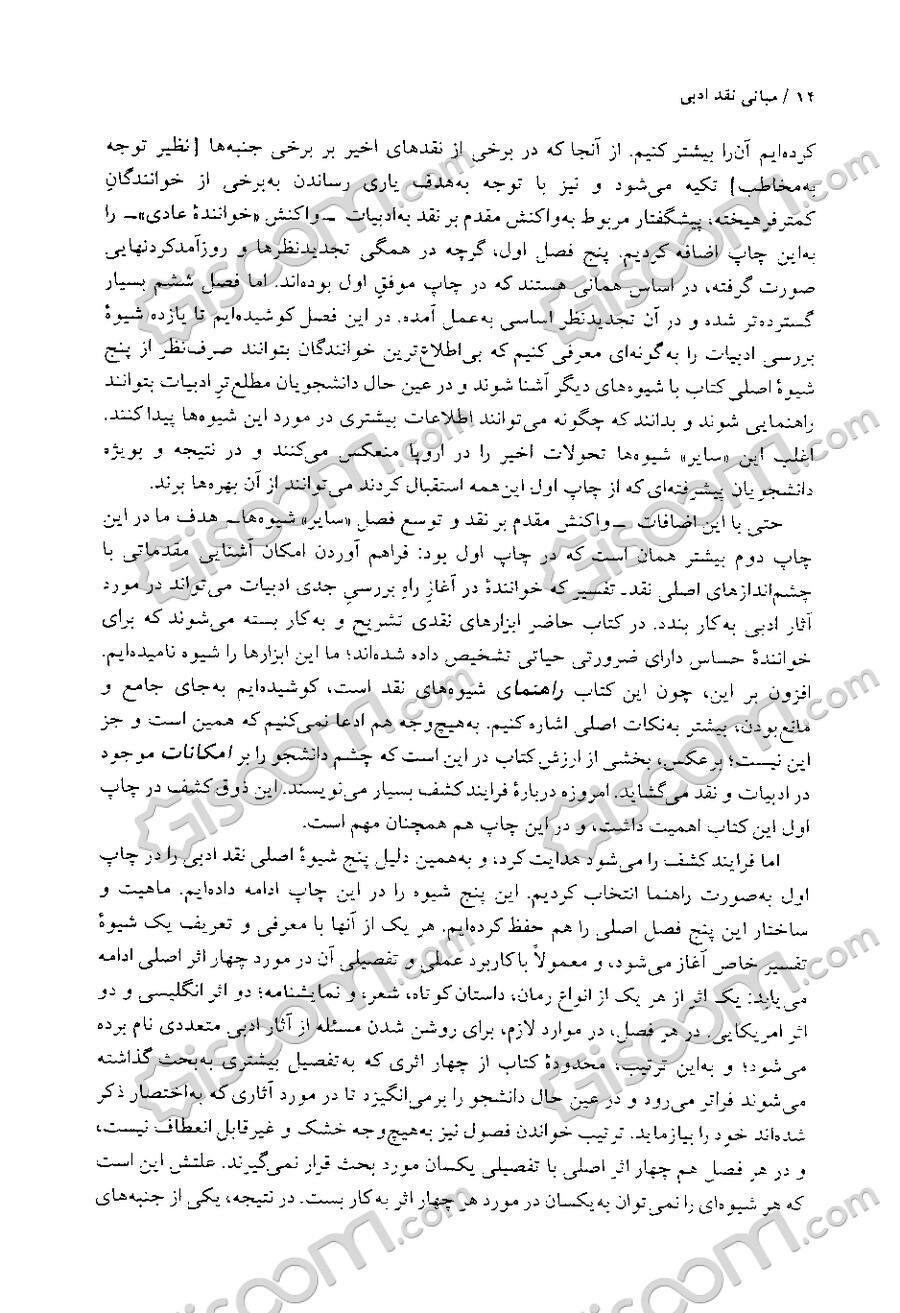 ۱۴ / مبانی نقد ادبی
کرده‌ایم آن‌را بیشتر کنیم. از آنجا که در برخی از نقدهای اخیر بر برخی جنبه‌ها [نظیر توجه
به‌مخاطب] تکیه می‌شود و نیز با توجه به‌هدف یاری رساندن به‌برخی از خوانندگانِ
کمتر فرهیخته، پیشگفتار مربوط به‌واکنش مقدم بر نقد به‌ادبیات ـ‌واکنش «خوانندهٔ عادی»ـ را
به‌این چاپ اضافه کردیم. پنج فصل اول، گرچه در همگی تجدیدنظرها و روزآمدکردنهایی
صورت گرفته، در اساس همانی هستند که در چاپ موفقِ اول بوده‌اند. اما فصل ششم بسیار
گسترده‌تر شده و در آن تجدیدنظر اساسی به‌عمل آمده. در این فصل کوشیده‌ایم تا یازده شیوهٔ
بررسی ادبیات را به‌گونه‌ای معرفی کنیم که بی‌اطلاع‌ترین خوانندگان بتوانند صرف‌نظر از پنج
شیوهٔ اصلی کتاب با شیوه‌های دیگر آشنا شوند و در عین حال دانشجویان مطلع‌ترِ ادبیات بتوانند
راهنمایی شوند و بدانند که چگونه می‌توانند اطلاعات بیشتری در مورد این شیوه‌ها پیدا کنند.
اغلب این «سایر» شیوه‌ها تحولات اخیر را در اروپا منعکس می‌کنند و در نتیجه و بویژه
دانشجویان پیشرفته‌ای که از چاپ اول این‌همه استقبال کردند می‌توانند از آن بهره‌ها برند.
حتی با این اضافات ـ‌واکنش مقدم بر نقد و توسع فصل «سایر» شیوه‌هاـ هدف ما در این
چاپ دوم بیشتر همان است که در چاپ اول بود: فراهم آوردن امکان آشنایی مقدماتی با
چشم‌اندازهای اصلی نقدـ تفسیر که خوانندهٔ در آغازِ راهِ بررسیِ جدی ادبیات می‌تواند در مورد
آثار ادبی به‌کار بندد. در کتاب حاضر ابزارهای نقدی تشریح و به‌کار بسته می‌شوند که برای
خوانندهٔ حساس دارای ضرورتی حیاتی تشخیص داده شده‌اند؛ ما این ابزارها را شیوه نامیده‌ایم.
افزون بر این، چون این کتاب راهنمای شیوه‌های نقد است، کوشیده‌ایم به‌جای جامع و
مانع‌بودن، بیشتر به‌نکات اصلی اشاره کنیم. به‌هیچ‌وجه هم ادعا نمی‌کنیم که همین است و جز
این نیست؛ برعکس، بخشی از ارزش کتاب در این است که چشم دانشجو را بر امکانات موجود
در ادبیات و نقد می‌گشاید. امروزه دربارهٔ فرایند کشف بسیار می‌نویسند. این ذوق کشف در چاپ
اول این کتاب اهمیت داشت، و در این چاپ هم همچنان مهم است.
اما فرایند کشف را می‌شود هدایت کرد، و به‌همین دلیل پنج شیوهٔ اصلی نقد ادبی را در چاپ
اول به‌صورت راهنما انتخاب کردیم. این پنج شیوه را در این چاپ ادامه داده‌ایم. ماهیت و
ساختار این پنج فصل اصلی را هم حفظ کرده‌ایم. هر یک از آنها با معرفی و تعریف یک شیوهٔ
تفسیر خاص آغاز می‌شود، و معمولاً با کاربرد عملی و تفصیلی آن در مورد چهار اثر اصلی ادامه
می‌یابد: یک اثر از هر یک از انواعِ رمان، داستان کوتاه، شعر، و نمایشنامه؛ دو اثر انگلیسی و دو
اثر امریکایی. در هر فصل، در موارد لازم، برای روشن شدن مسئله از آثار ادبی متعددی نام برده
می‌شود؛ و به‌این ترتیب، محدودهٔ کتاب از چهار اثری که به‌تفصیل بیشتری به‌بحث گذاشته
می‌شوند فراتر می‌رود و در عین حال دانشجو را برمی‌انگیزد تا در مورد آثاری که به‌اختصار ذکر
شده‌اند خود را بیازماید. ترتیب خواندن فصول نیز به‌هیچ‌وجه خشک و غیرقابل انعطاف نیست،
و در هر فصل هم چهار اثر اصلی با تفصیلی یکسان مورد بحث قرار نمی‌گیرند. علتش این است
که هر شیوه‌ای را نمی‌توان به‌یکسان در مورد هر چهار اثر به‌کار بست. در نتیجه، یکی از جنبه‌های